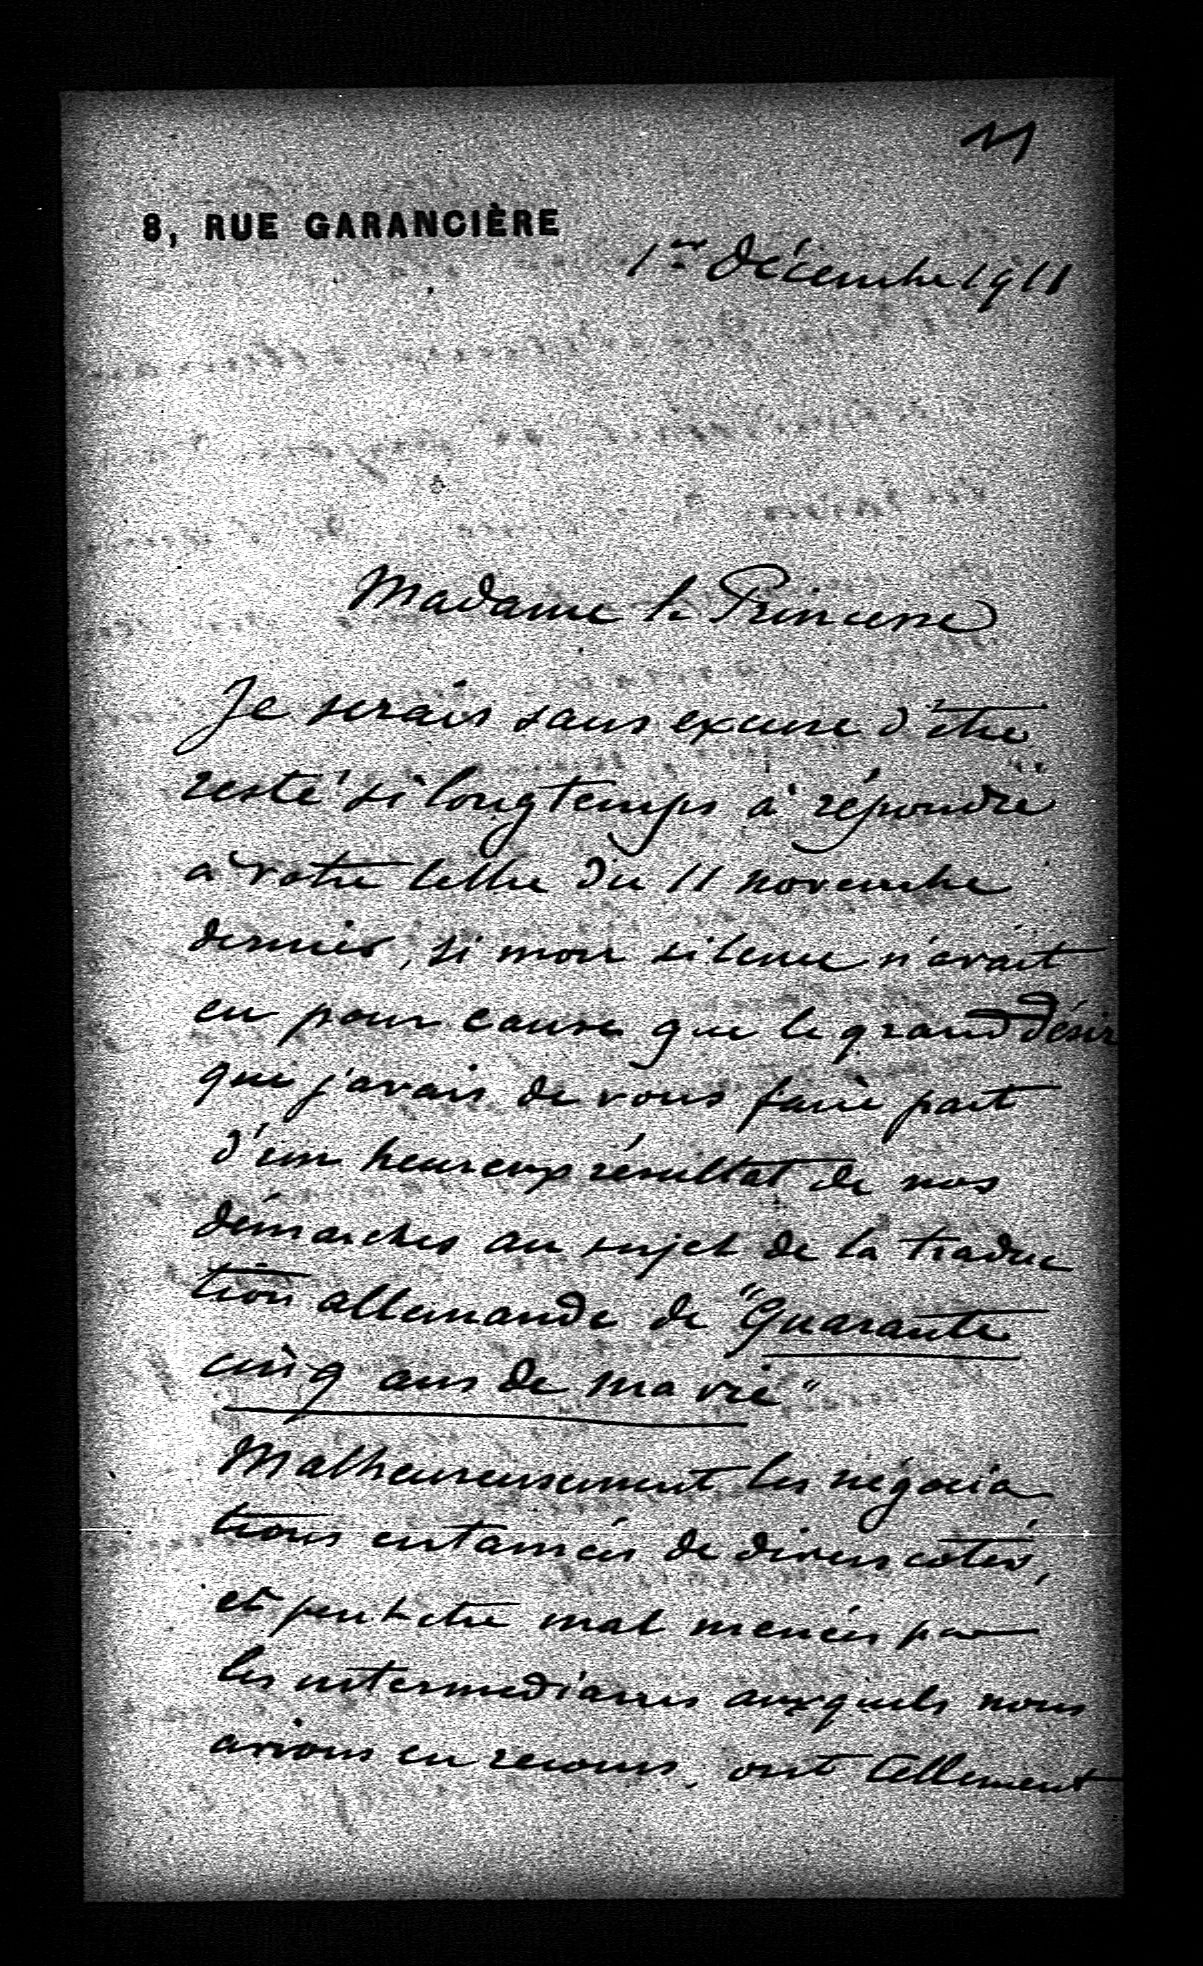 8, RUE GARANCIÈRE
1er décembre 1911
Madame la Princesse
Je serais sans excuse d'être
resté si longtemps à répondre
à votre lettre du 11 novembre
dernier, si mon silence n'avait
eu pour cause que le grand désir
que j'avais de vous faire part
d'un heureux résultat de nos
démarches au sujet de la traduc
tion allemande de "Quarante
cinq ans de ma vie"
Malheureusement les négocia
tions entamées de divers côtés,
et peut être mal menées par
les intermédiaires auxquels nous
avions eu recours, ont tellement